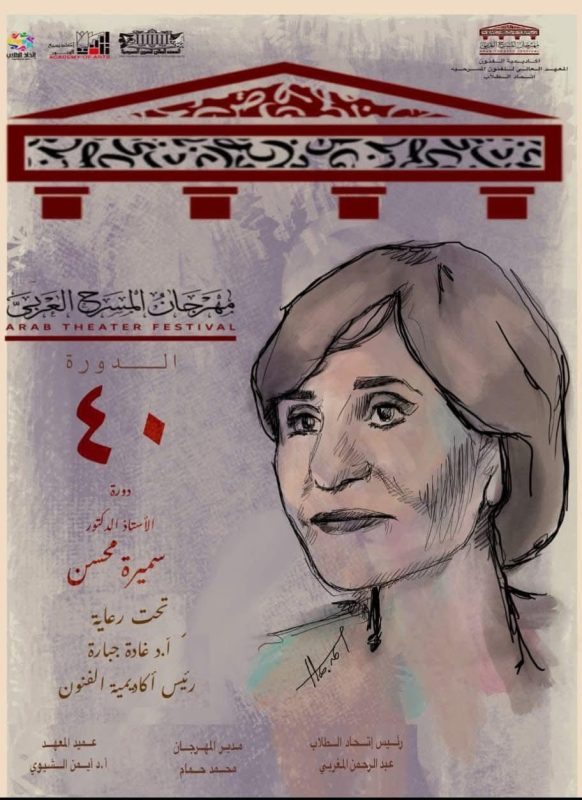 اتحاد الطلاب
ACADEMY OF ARTS
مهرجان المسرح العربي
أكاديمية الفنون
المعهد العالي للفنون المسرحية
اتحاد الطلاب
مهرجان المسرح العربي
ARAB THEATER FESTIVAL
الدورة
٤٠
دورة
الأستاذ الدكتور
سميرة محسن
تحت رعاية
أ.د غادة جبارة
رئيس أكاديمية الفنون
رئيس إتحاد الطلاب
عبد الرحمن المغربي
مدير المهرجان
محمد حمام
عميد المعهد
أ.د أيمن الشيوي